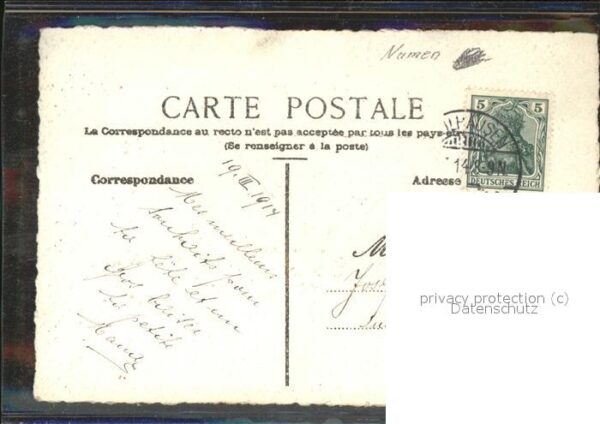 Numen
CARTE POSTALE
La Correspondance au recto n'est pas acceptée par tous les pays
(Se renseigner à la poste)
Correspondance
Adresse
5 5
DEUTSCHES REICH
19.III.1914
Mes meilleurs
souhaits pour
ta fête et un
gros baiser
ta petite
privacy protection (c)
Datenschutz